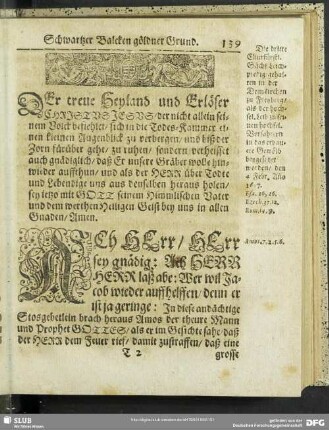 Schwartzer Balcken göldner Grund.
139
DEr treue Heyland und Erlöser
CHRISTUS JESUS, der nicht allein sei-
nem Volck befiehlet, sich in die Todes-Kammer ei-
nen kleinen Augenblick zu verbergen, und biß der
Zorn fürüber gehe, zu ruhen, sondern verheisset
auch gnädiglich, daß Er unsere Gräber wolle hin-
wieder auffthun, und als der HERR über Todte
und Lebendige uns aus denselben heraus holen,
sey ietzo mit GOTT seinem Himmlischen Vater
und dem werthen Heiligen Geist bey uns in allen
Gnaden, Amen.
ACH HErr/ HErr
sey gnädig: Ach HERR
HERR laß abe: Wer wil Ja-
cob wieder auffhelffen/ denn er
ist ja geringe: In diese andächtige
Stosgebetlein brach heraus Amos der theure Mann
und Prophet GOTTES/ als er im Gesichte sahe, daß
der HERR dem Feuer rief, damit zustraffen, daß eine
T 2
grosse
Die dritte
Churfürstl.
Sächs. Leich-
predig, gehal-
ten in der
Dom-kirchen
zu Freyberg,
als der hoch-
sel. Leib zu sei-
nen hochsel.
Vorfahren
in das erbau-
te Gewölb
beygesetzet
worden, den
4. Febr. Año
1657.
Esa. 26, 20.
Ezech. 37. 12.
Rom. 14. 9.
Amos. 7. 2. 5. 6.
SLUB
Wir führen Wissen.
Gefördert von der
Deutschen Forschungsgemeinschaft
DFG